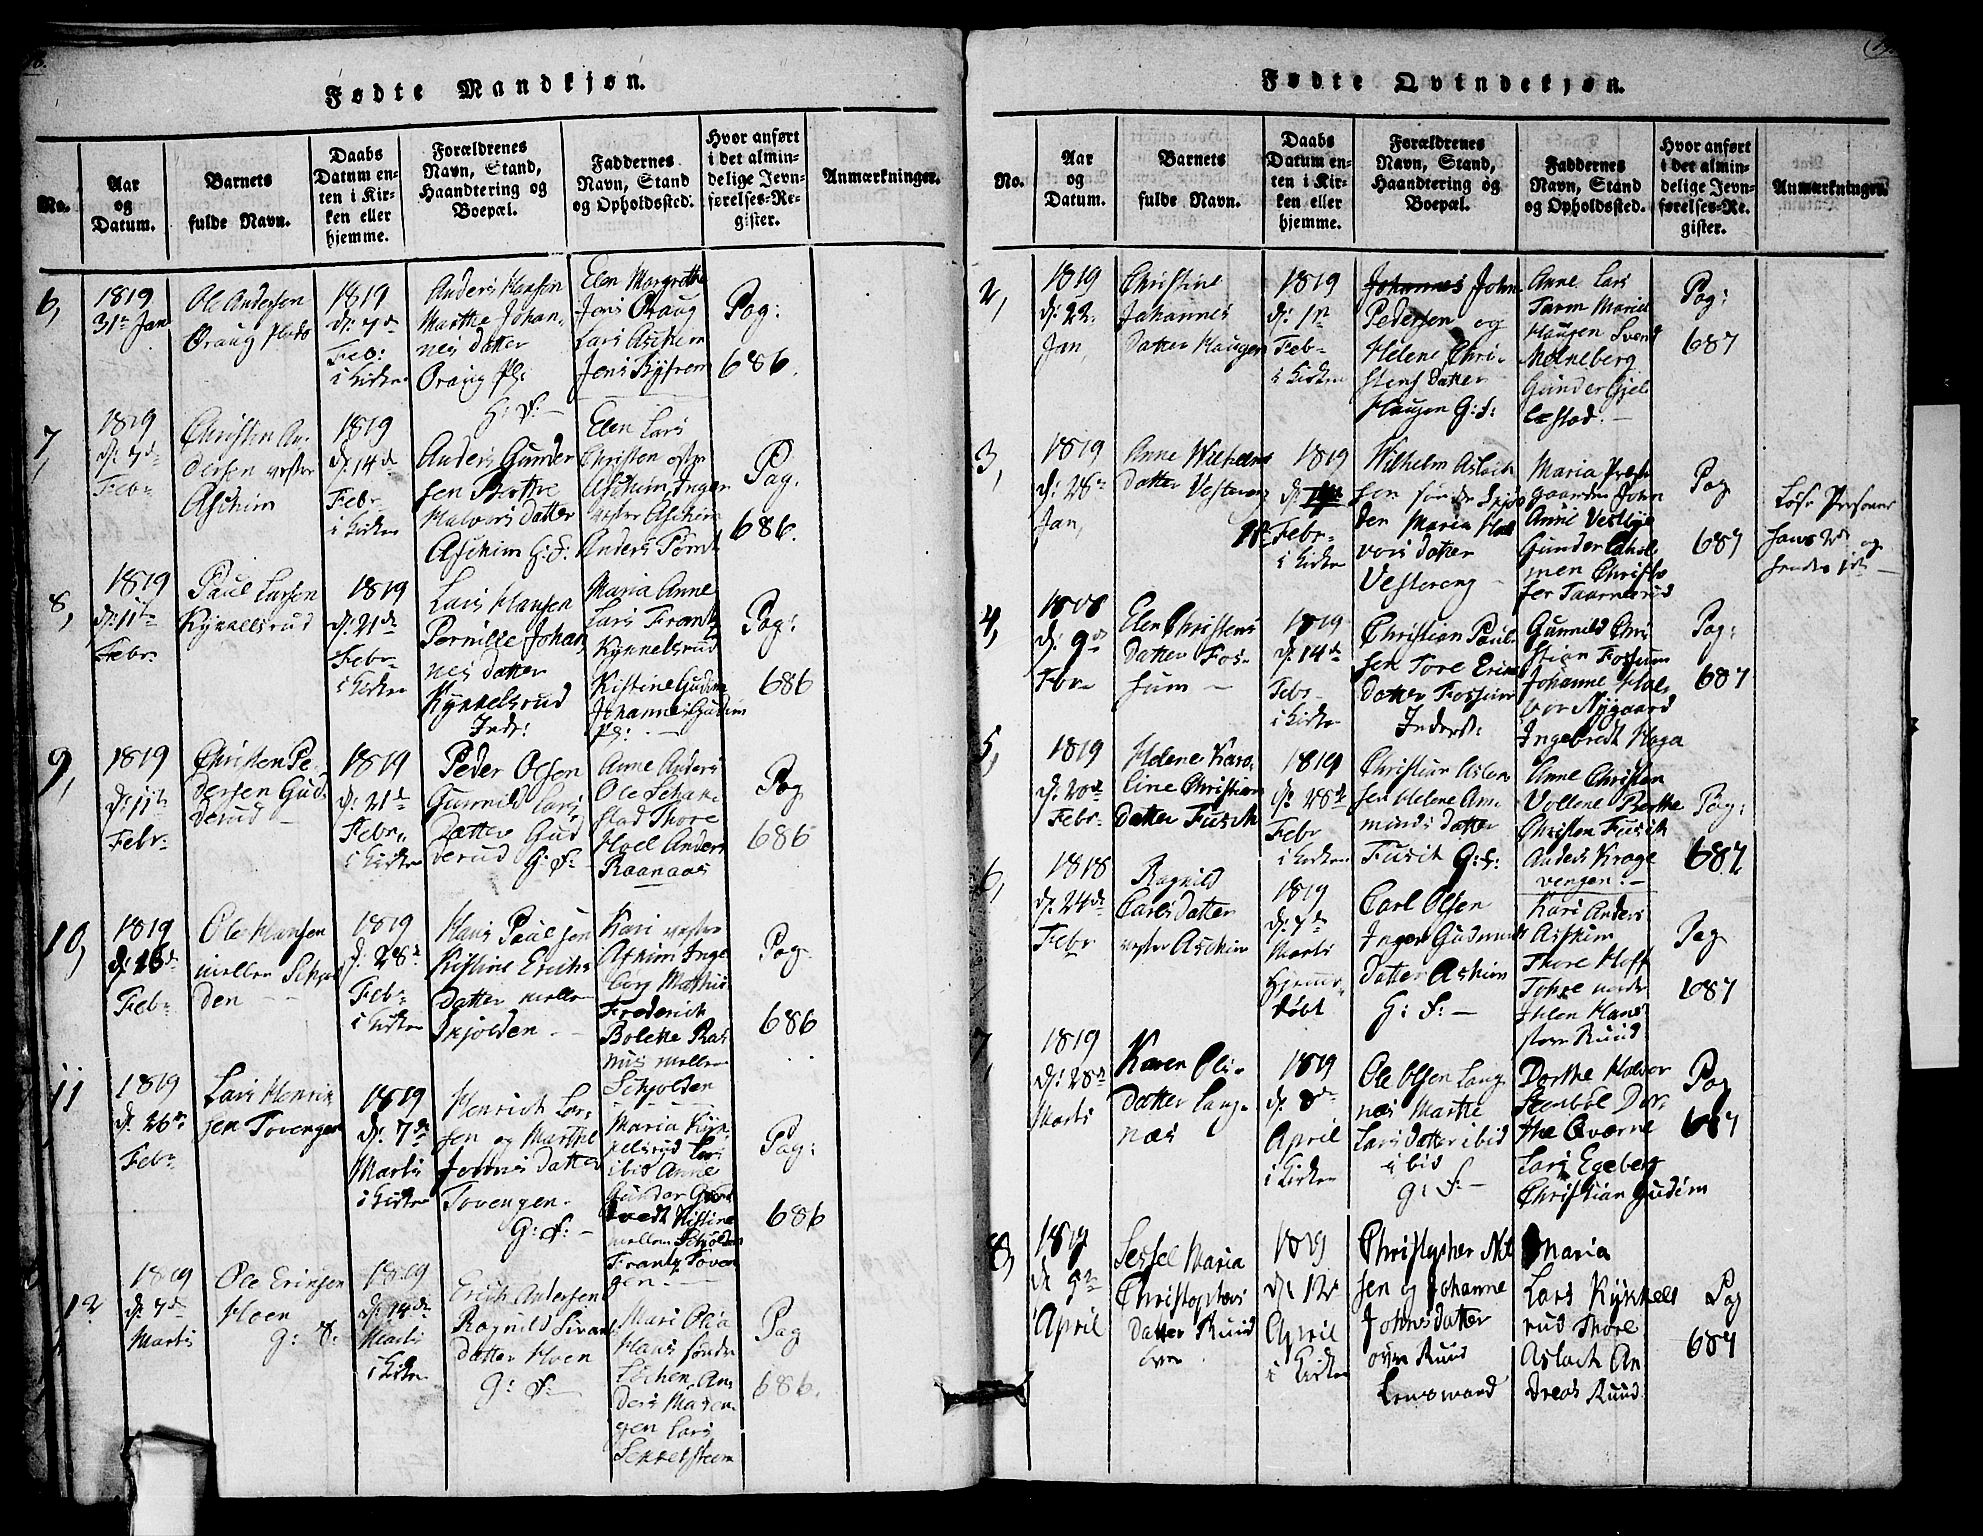 Fødte Mandkjøn.
No.
Aar
og
Datum.
Barnets
fulde Navn.
Daabs
Datum en-
ten i Kir-
ken eller
hjemme.
Forældrenes
Navn, Stand,
Haandtering og
Boepæl.
Faddernes
Navn, Stand
og Opholdssted.
Hvor anført
i det almin-
delige Jevn-
førelses-Re-
gister.
Anmærkninger.
6,
1819
31te Jan
Ole Anderson
Oraug Plads
1819
d: 7de
Feb:
i Kirken
Anders Hanson
Marthe Johan-
nes datter
Oraug Pl:
G: F: -
Elen Margrethe
Jens Oraug
Lars Aschim
Jens
Pag:
686.
7,
1819
d: 7de
Febr
Christen An-
dersen vestre
Aschim
1819
d: 14de
Febr
i Kirken
Anders Gunder
sen Berthe
Halvors datter
Aschim G: F:
Elen Lars
Christen østre
Aschim Inger
vestre Aschim
Anders
Pag.
686.
8,
1819
d: 11te
Febr
Paul Larsen
Kykkelsrud
1819
d: 21de
Febr
i Kirken
Lars Hansen
Pernille Johan
nes datter
Kykkelsrud
Inds:
Maria Anne
Lars Frantz
Kykkelsrud
Kistine Gudim
Johannes Gudim
Pl: -
Pag:
686
9,
1819
d: 11te
Febr
Christen Pe-
dersen Gud-
derud
1819
d: 21de
Febr
i Kirken
Peder Olsen
Gunnild Lars
Datter Gud
derud G: F: -
Anne Anders
Ole Skan-
stad Thore
Hoel Anders
Raanaas
Pag
686
10,
1819
d: 26de
Febr
Ole Hansen
mellem Skiol
den
1819
d: 28de
Febr
i Kirken
Hans Paulsen
Kistine Erichs
datter mellem
Skjolden
Kari vestre
Askim Inge
borg Mathis
Frederich
Bolette Ras
mus mellem
Schjolden
Pag
686
11
1819
d. 26de
Febr
Lars Henrik
sen Tovengen
1819
d: 7de
Marti
i Kirken
Henrich Lar-
sen og Marthe
Joens datter
Tovengen.
G: F: -
Maria Kyk-
kelsrud Lars
ibid Anne
Gunder
tvedt Kistine
mellem Schiolden
Frantz Toven
gen
Pag:
686
12
1819
d. 7de
Marti
Ole Erichsen
Hoen
G: F:
1819
d: 14de
Marti
i Kirken
Erich Andersen
Ragnild Sivers
datter Hoen
G: F:
Mari Olia
Hans søndre
Löchen An-
ders Maren
gen Lars
Pag
686.
Fødte Qvindekjøn.
No.
Aar
og
Datum.
Barnets
fulde Navn.
Daabs
Datum en-
ten i Kir-
ken eller
hjemme.
Forældrenes
Navn, Stand,
Haandtering og
Boepæl.
Faddernes
Navn, Stand
og Opholdssted.
Hvor anført
i det almin-
delige Jevn-
førelses-Re-
gister.
Anmærkninger.
2,
1819
d: 22
Jan,
Christine
Johannes
datter Haugen
1819
d: 1te
Feb
i Kirken
Johannes John
Pedersen og
Helene Chri-
stens datter
Haugen G: F:
Anne Lars
Tarm Mariel
Haugen Svend
Melleberg
Gunder Gjel
lestad.
Pag:
687
3,
1819
d: 28
Jan,
Anne Wilhelms
datter Vestereng
1819
d:
11te Febr
i Kirken
Wilhelm Aslach
sen søndre Skjol
den Maria Hal
vors datter
Vestereng
Maria Præste
gaarden John
Anne Vestbye
Gunder
men Christo
fer Taarnerud
Pag
687
Løse Personer
hans 2de og
hendes 1te
4,
1818
d: 9de
Febr
Elen Christens
datter Fos-
sum
1819
d: 14de
Febr
i Kirken
Christian Paul-
sen Tore Erichs
datter Fossum
Inderst:
Gunnild Chri
stian Fossum
Johanne Hal-
vor Nygaard
Ingebredt Haga
Pag:
687
5,
1819
d. 20de
Febr
Helene Karo-
line Christian
datter Fusich
1819
d: 28de
Febr
i Kirken
Christian Aslach
sen Helene Am-
munds datter
Fusich G: F:
Anne Christen
Vollene Berthe
Christen Fusich
Anders Krage
vengen: -
Pag:
687
6,
1818
d: 24de
Febr
Ragnild
Carls datter
vestre Aschim
1819
d: 7de
Marti
Hjemme-
døbt
Carl Olsen
Inger Gudmunds
datter Askim
G: F: -
Kari Anders
Askim
Thore Hoff
Tohre nordre
Ihlen Hans
store Ruud
Pag
687
7,
1819
d: 28de
Marti
Karen Ols-
datter Lang-
næs
1819
d. 8de
April
i Kirken
Ole Olsen Lang
næs Marthe
Lars datter ibid
ibid
G: F: -
Dorthe Halvor
Stenbøl Dor-
the Qværne
Lars Egeberg
Christian Gudim
Pag
687
8,
1819
d. 5te
April
Sessel Maria
Christophers
datter Ruud
over
1819
d: 12te
April
i Kirken
Christopher Nil
sen og Johanne
Johnsdatter
over Ruud
Lensmand
Maria
Lars Kykkels
rud Thore
Aslach An
dreas Ruud
Pag
687